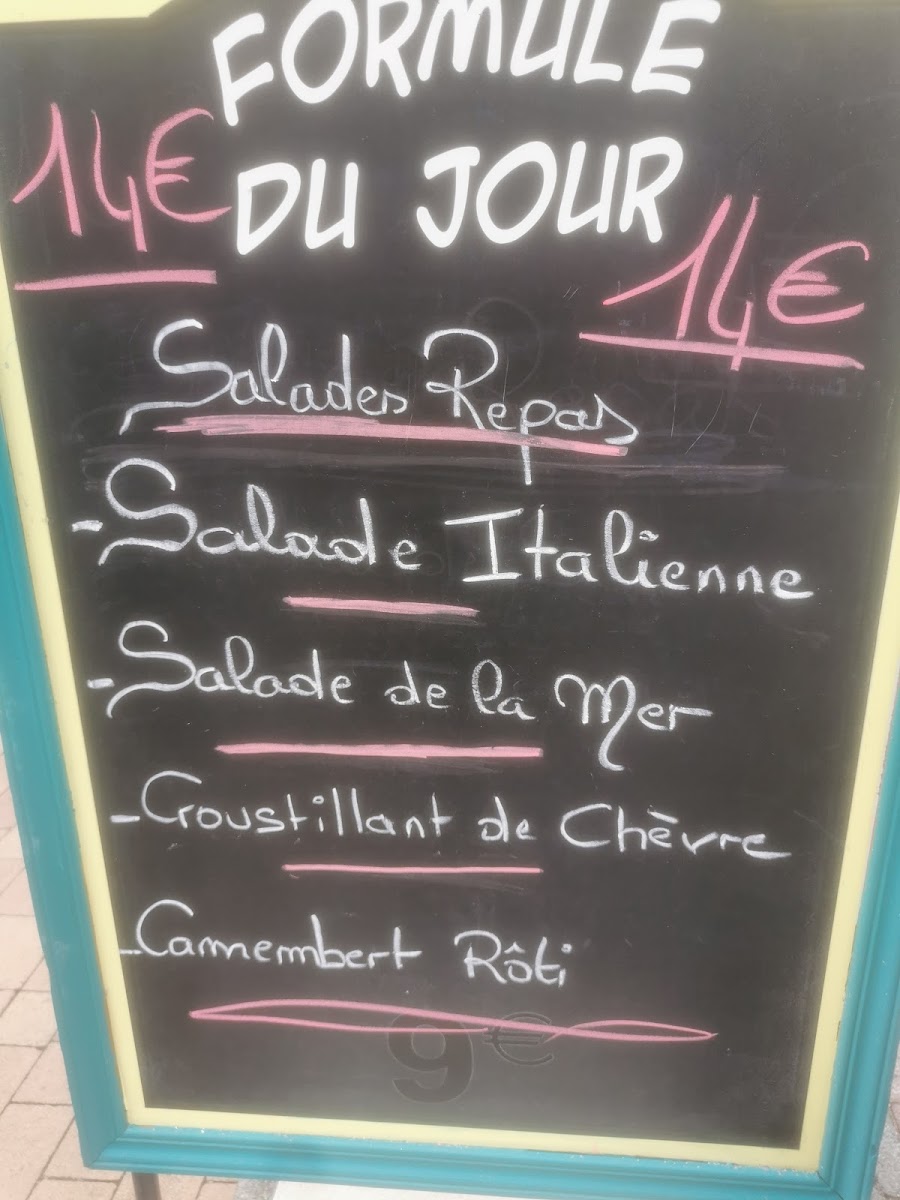 FORMULE
14€
DU JOUR
14€
Salades Repas
- Salade Italienne
- Salade de la Mer
- Croustillant de Chèvre
- Camembert Rôti
9€